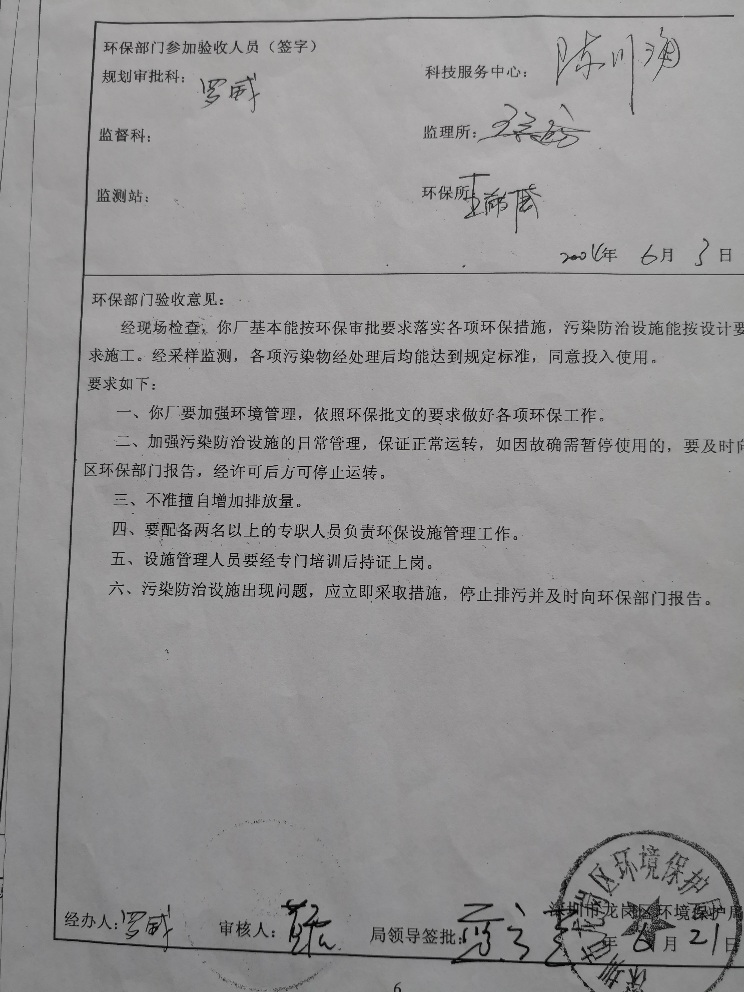 环保部门参加验收人员（签字）
规划审批科：罗威 科技服务中心：陈川
监督科： 监理所：王
监测站： 环保所：王
2004年 6月 3日
环保部门验收意见：
经现场检查，你厂基本能按环保审批要求落实各项环保措施，污染防治设施能按设计要
求施工。经采样监测，各项污染物经处理后均能达到规定标准，同意投入使用。
要求如下：
一、你厂要加强环境管理，依照环保批文的要求做好各项环保工作。
二、加强污染防治设施的日常管理，保证正常运转，如因故确需暂停使用的，要及时向
区环保部门报告，经许可后方可停止运转。
三、不准擅自增加排放量。
四、要配备两名以上的专职人员负责环保设施管理工作。
五、设施管理人员要经专门培训后持证上岗。
六、污染防治设施出现问题，应立即采取措施，停止排污并及时向环保部门报告。
深圳市龙岗区环境保护局
深圳市龙岗区环境保护局
经办人：罗威 审核人： 局领导签批： 年 6月 21日
6